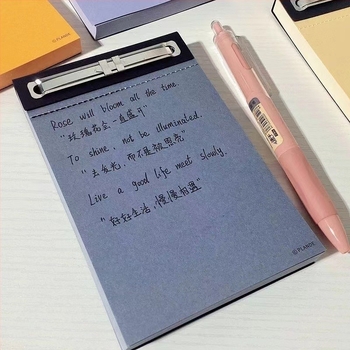 ©PLANDE
Rose will bloom all the time.
"玫瑰花会一直盛开"
To shine, not be illuminated.
"去发光，而不是被照亮"
Live a good life meet slowly.
"好好生活，慢慢相遇"
©PLANDE